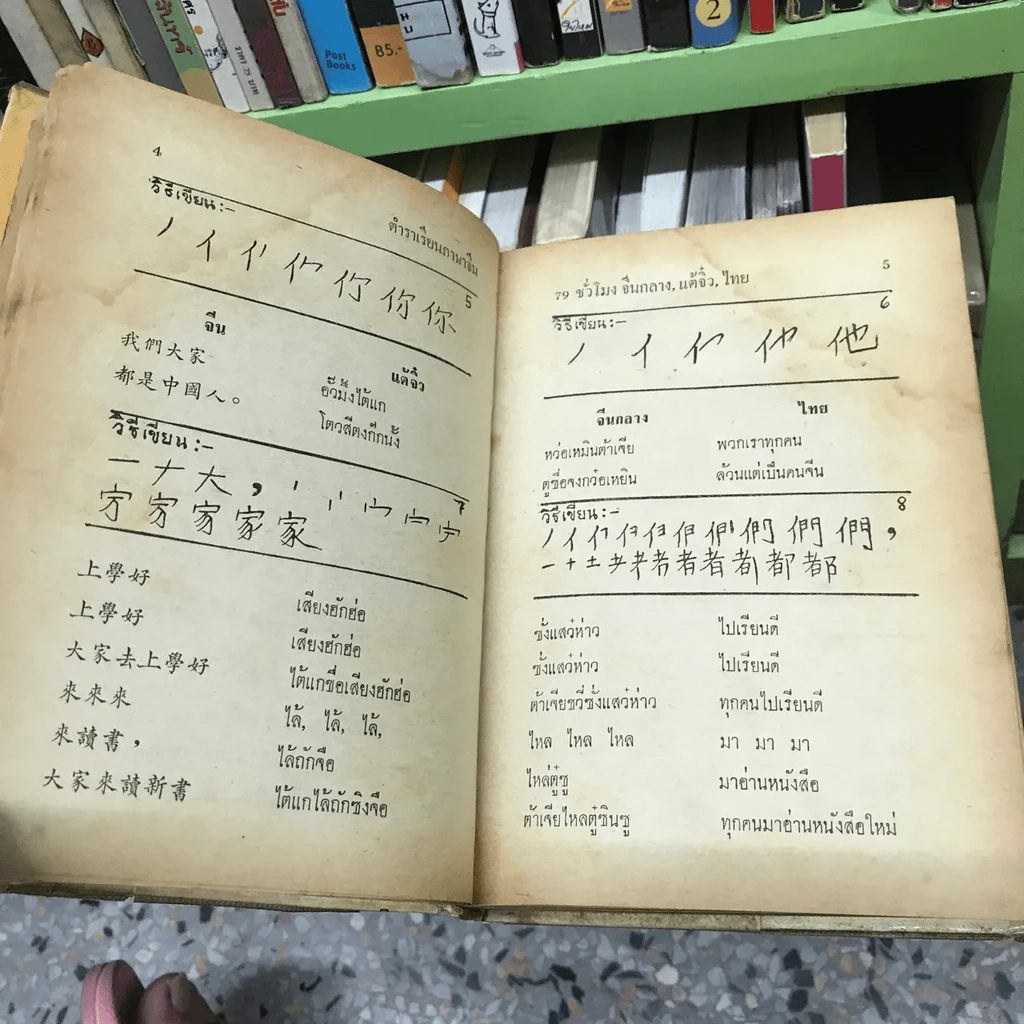 Post
Books
85.-
2
ราคา 75 บาท
4
ตำราเรียนภาษาจีน
วิธีเขียน:-
5
你
จีน
แต้จิ๋ว
我們大家
อั๊วมั๊งไต้แก
都是中國人。
โตวสีตงก๊กนั้ง
วิธีเขียน:-
7
一ナ大,
家
上學好
เสียงฮักฮ่อ
上學好
เสียงฮักฮ่อ
大家去上學好
ไต้แกขื่อเสียงฮักฮ่อ
來來來
ไล้, ไล้, ไล้,
來讀書,
ไล้ถักจือ
大家來讀新書
ไต้แกไล้ถักซิงจือ
5
79 ชั่วโมง จีนกลาง, แต้จิ๋ว, ไทย
6
วิธีเขียน:-
他
จีนกลาง
ไทย
หว่อเหมินต้าเจีย
พวกเราทุกคน
ตูซื่อจงกว๋อเหยิน
ล้วนแต่เป็นคนจีน
วิธีเขียน:-
8
們,
都
ซั่งแสว๋ห่าว
ไปเรียนดี
ซั่งแสว๋ห่าว
ไปเรียนดี
ต้าเจียชวี่ซั่งแสว๋ห่าว
ทุกคนไปเรียนดี
ไหล ไหล ไหล
มา มา มา
ไหล่ตู๋ซู
มาอ่านหนังสือ
ต้าเจียไหลตู๋ซินซู
ทุกคนมาอ่านหนังสือใหม่